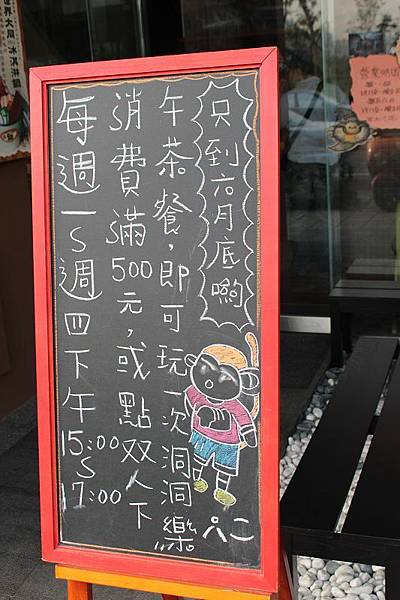 每週一~週四下午15:00~17:00
消費滿500元,或點双人下
午茶餐,即可玩一次洞洞樂
只到六月底喲
ペニ